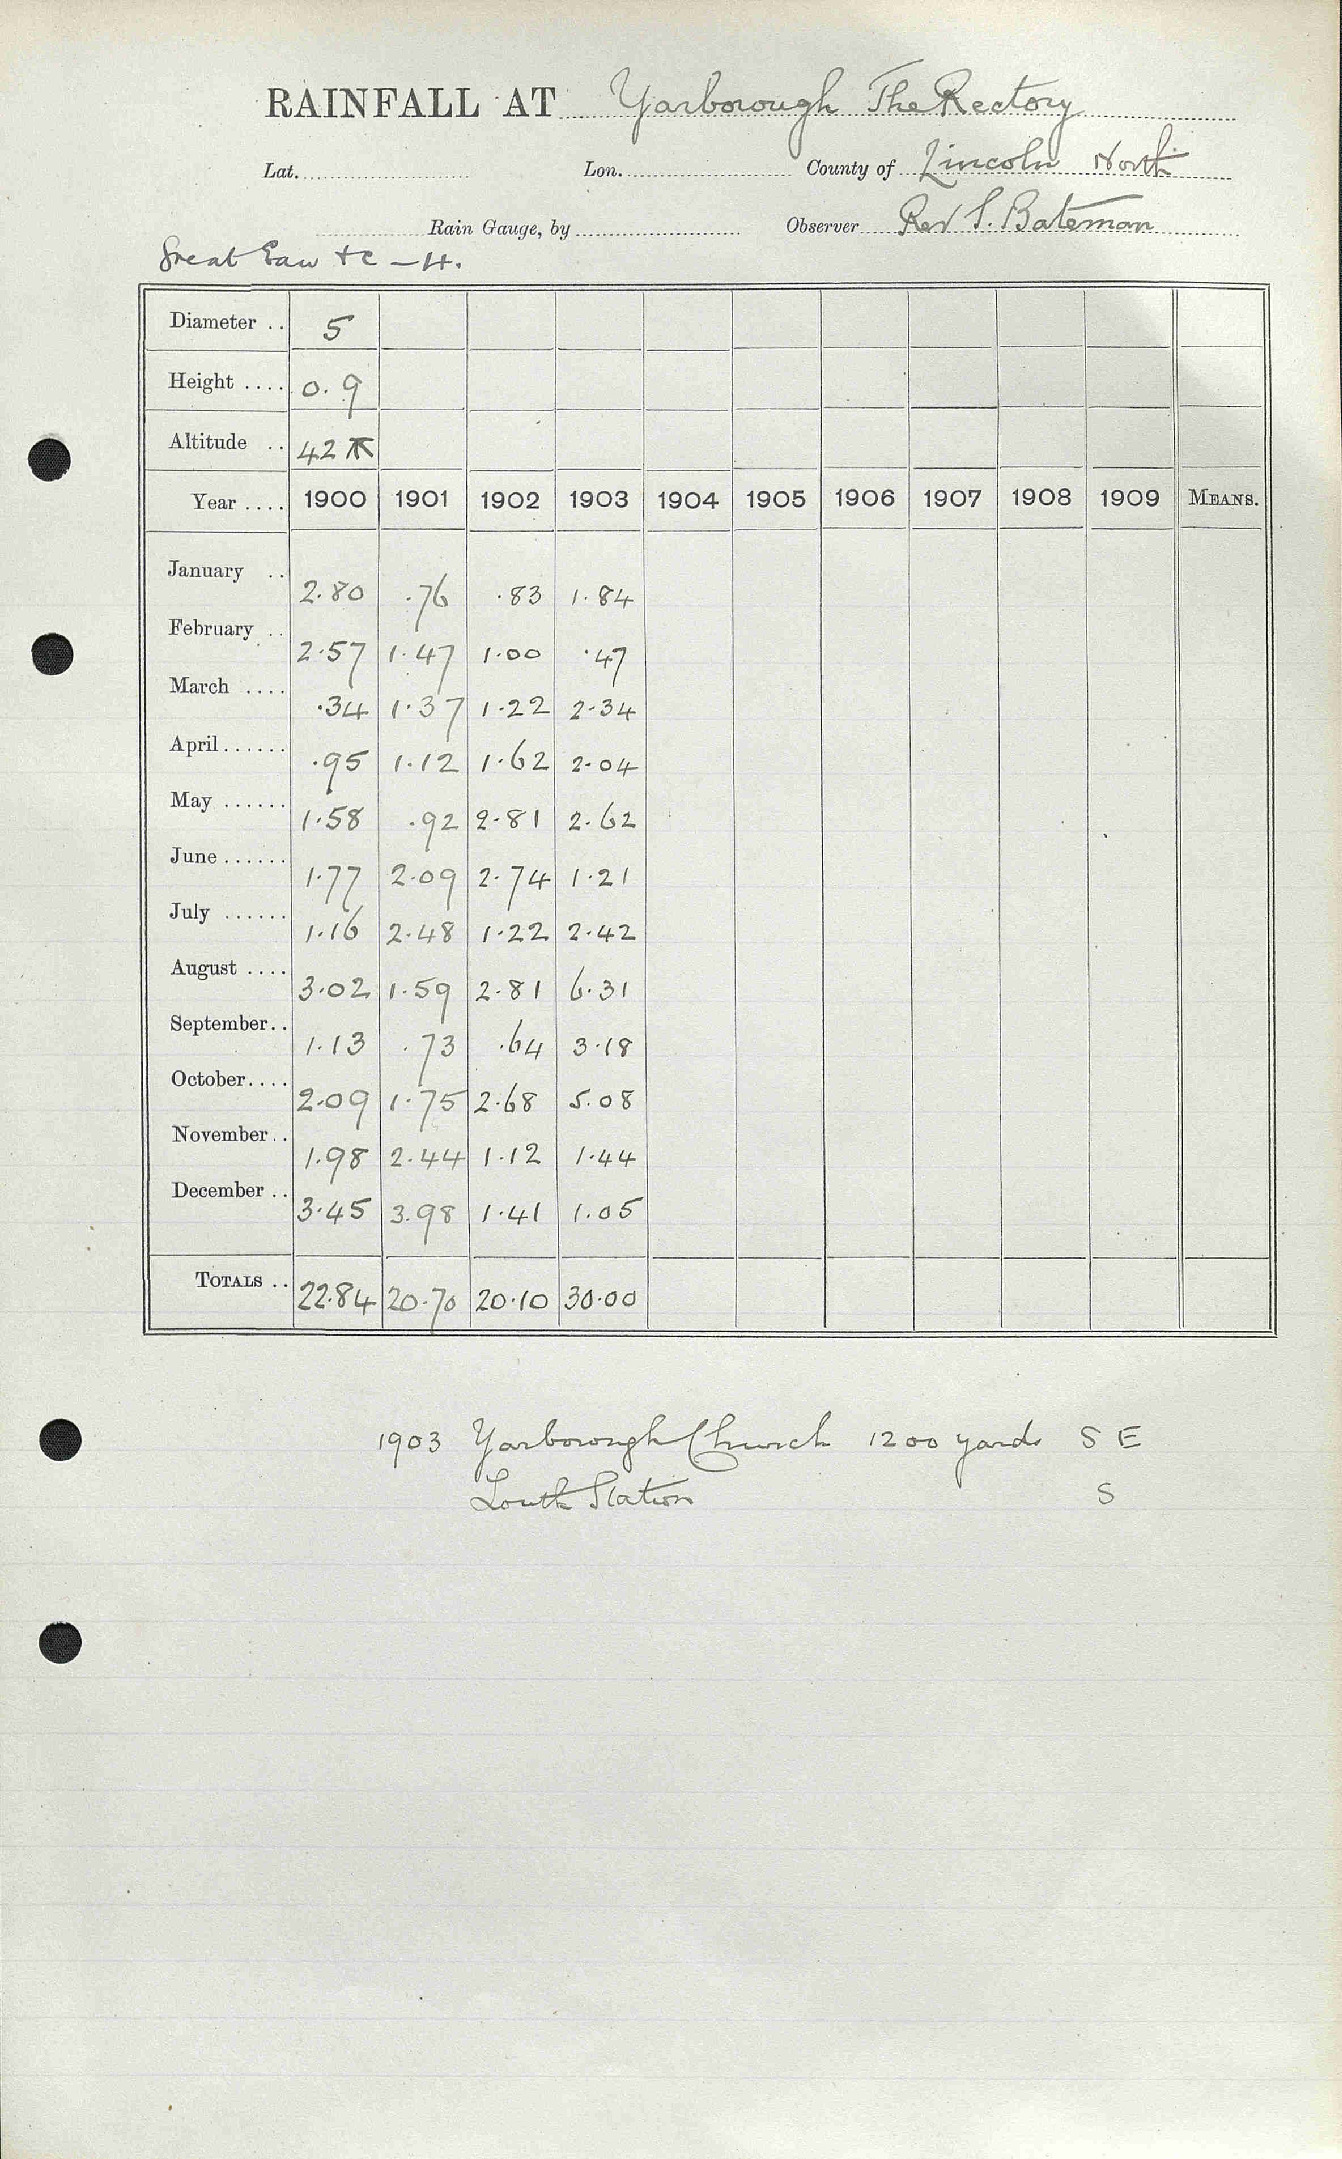 RAINFALL AT Yarborough The Rectory
Lat. Lon. County of Lincoln North
Rain Gauge, by Observer Rev S. Bateman
Great Eau &c — H.
Diameter .. 5
Height .... 0.9
Altitude .. 42
Year .... 1900 1901 1902 1903 1904 1905 1906 1907 1908 1909 MEANS.
January .. 2.80 .76 .83 1.84
February .. 2.57 1.47 1.00 .47
March .... .34 1.37 1.22 2.34
April ...... .95 1.12 1.62 2.04
May ...... 1.58 .92 2.81 2.62
June ...... 1.77 2.09 2.74 1.21
July ...... 1.16 2.48 1.22 2.42
August .... 3.02 1.59 2.81 6.31
September .. 1.13 .73 .64 3.18
October .... 2.09 1.75 2.68 5.08
November .. 1.98 2.44 1.12 1.44
December .. 3.45 3.98 1.41 1.05
TOTALS .. 22.84 20.70 20.10 30.00
1903 Yarborough Church 1200 yards S E
Louth Station S